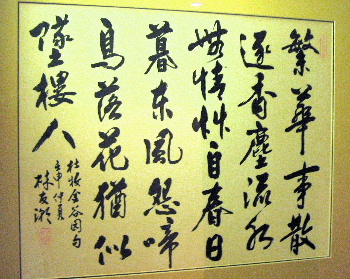 繁華事散
逐香塵流水
無情艸自春日
暮東風怨啼
鳥落花猶似
墜樓人
杜牧金谷园句
壬申仲夏
林友